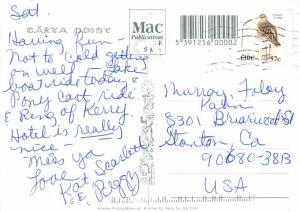 Sat
CÁRTA POIST
Having fun -
Not to Cold getting
on well. Lake
boat ride today &
Pony cart ride
& Ring of Kerry.
Hotel is really
nice -
Miss ya
Love Scarlett
Kat
& Peggy
Mac
Publications
5 391256 000022
ÉIRE 57c
Murray, Foley
8301 Briarwood St
Stanton, Ca
90680-3813
USA